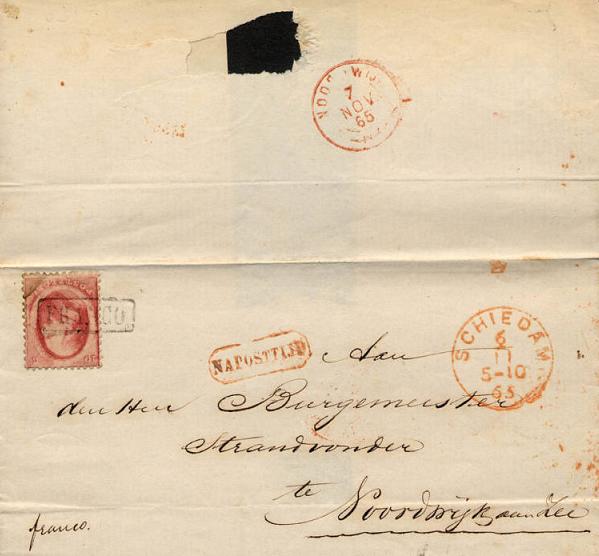 NOORDWIJK
7
NOV
65
FRANCO
NAPOSTTIJD
SCHIEDAM
6
11
5-10
65
Aan
den Heer Burgemeister
Strandvonder
te Noordwijk aan Zee
franco.